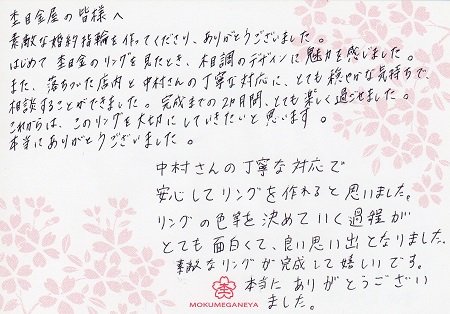 杢目金屋の皆様へ
素敵な婚約指輪を作ってくださり、ありがとうございました。
はじめて杢目金のリングを見たとき、木目調のデザインに魅力を感じました。
また、落ちついた店内と中村さんの丁寧な対応に、とても穏やかな気持ちで、
相談することができました。完成までの2カ月間、とても楽しく過ごせました。
これからは、このリングを大切にしていきたいと思います。
本当にありがとうございました。
中村さんの丁寧な対応で
安心してリングを作れると思いました。
リングの色等を決めていく過程が
とても面白くて、良い思い出となりました。
素敵なリングが完成して嬉しいです。
本当にありがとうござい
ました。
MOKUMEGANEYA